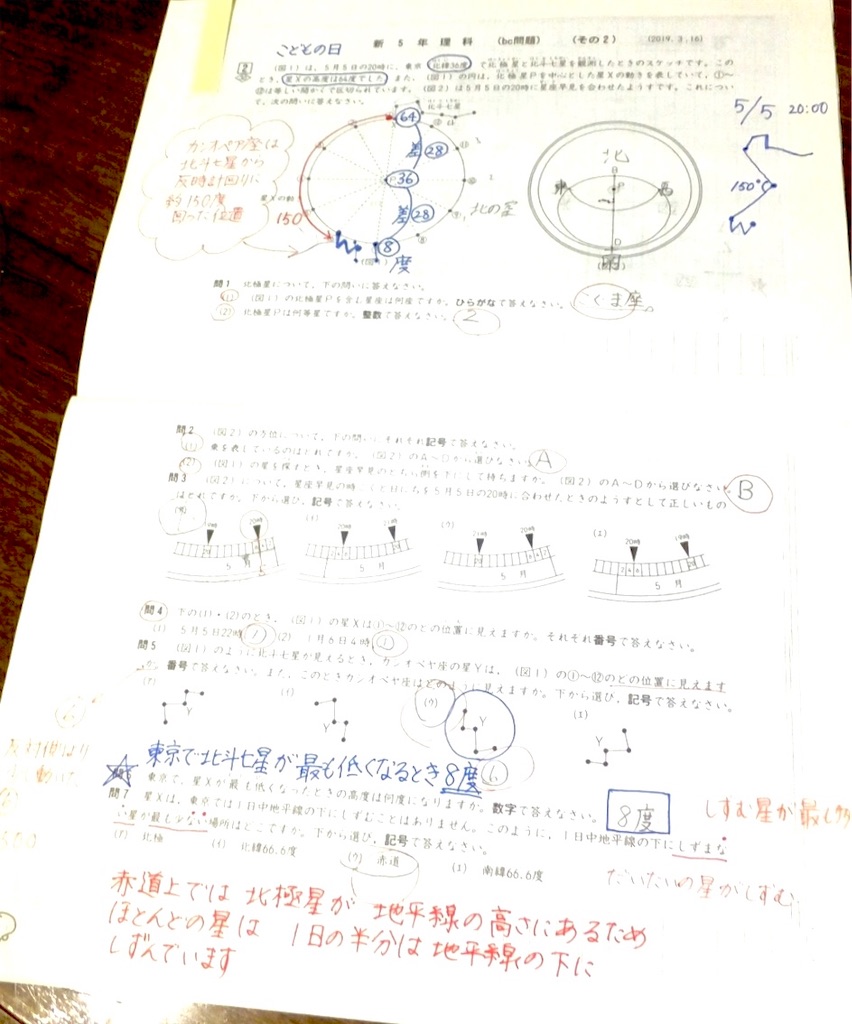 こどもの日
新5年理科 (bc問題) (その2) (2019.3.16)
2 (図1)は、5月5日の20時に、東京(北緯36度)で北極星と北斗七星を観測したときのスケッチです。この
とき、星Xの高度は64度でした。また、(図1)の円は、北極星Pを中心とした星Xの動きを表していて、①〜
⑫は等しい間かくで区切られています。(図2)は5月5日の20時に星座早見を合わせたようすです。これについ
て、次の問いに答えなさい。
カシオペア座は
北斗七星から
反時計回りに
約150度
回った位置
北斗七星
64
差28
P 36
差28
8
度
150
北の星
北
B
P
D
5/5 20:00
150°
問1 北極星について、下の問いに答えなさい。
(1) (図1)の北極星Pを含む星座は何座ですか。ひらがなで答えなさい。 こぐま座。
(2) 北極星Pは何等星ですか。整数で答えなさい。 2
問2 (図2)の方位について、下の問いにそれぞれ記号で答えなさい。
(1) 東を表しているのはどれですか。(図2)のA〜Dから選びなさい。 A
(2) (図1)の星を探すとき、星座早見のどちら側を下にして持ちますか。(図2)のA〜Dから選びなさい。 B
問3 (図2)について、星座早見の時こくと日にちを5月5日の20時に合わせたときのようすとして正しいもの
はどれですか。下から選び、記号で答えなさい。
(ア) (イ) (ウ) (エ)
20時 20時 21時 21時 20時 20時 19時
5月 5月 5月 5月
問4 下の(1)・(2)のとき、(図1)の星Xは①〜⑫のどの位置に見えますか。それぞれ番号で答えなさい。
(1) 5月5日22時 (2) 1月6日4時
問5 (図1)のように北斗七星が見えるとき、カシオペヤ座の星Yは、(図1)の①〜⑫のどの位置に見えます
か。番号で答えなさい。また、このときカシオペヤ座はどのように見えますか。下から選び、記号で答えなさい。
(ア) Y (イ) Y (ウ) Y (エ) Y
東京で北斗七星が最も低くなるとき8度
問6 東京で、星Xが最も低くなったときの高度は何度になりますか。数字で答えなさい。 8度
問7 星Xは、東京では1日中地平線の下にしずむことはありません。このように、1日中地平線の下にしずまな
い星が最も少ない場所はどこですか。下から選び、記号で答えなさい。
(ア) 北極 (イ) 北緯66.6度 (ウ) 赤道 (エ) 南緯66.6度
しずむ星が最も
だいたいの星がしずむ
赤道上では 北極星が 地平線の高さにあるため
ほとんどの星は 1日の半分は地平線の下に
しずんでいます